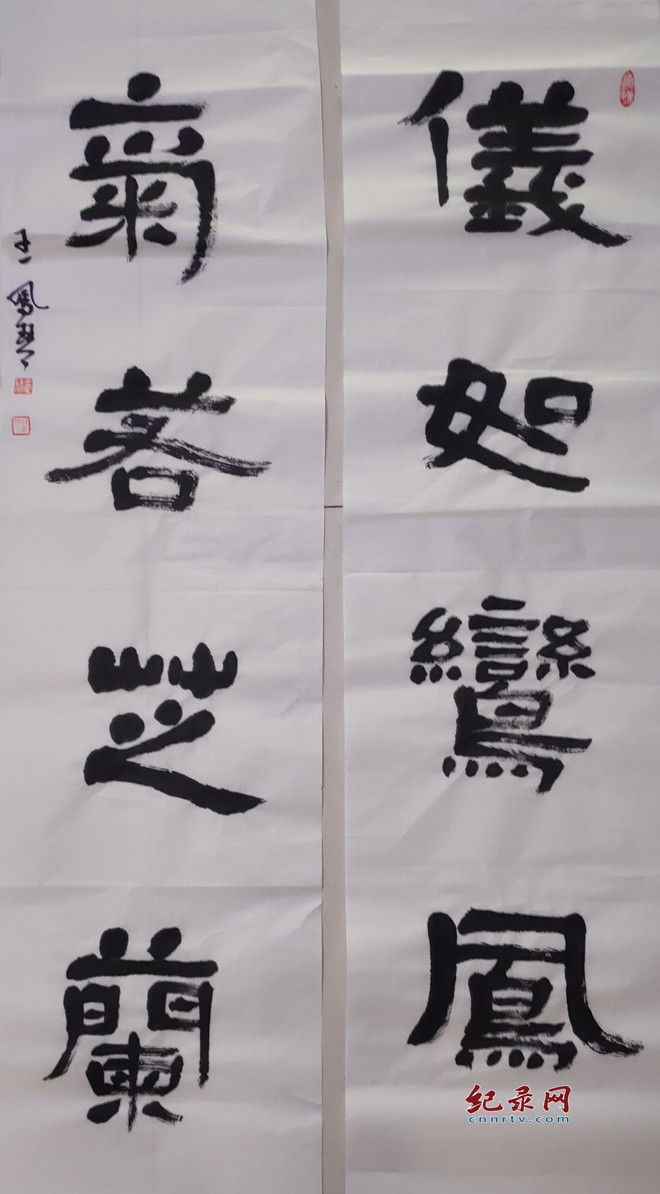 儀如鸞鳳
氣若芝蘭
鳳
纪录网
cnnrtv.com